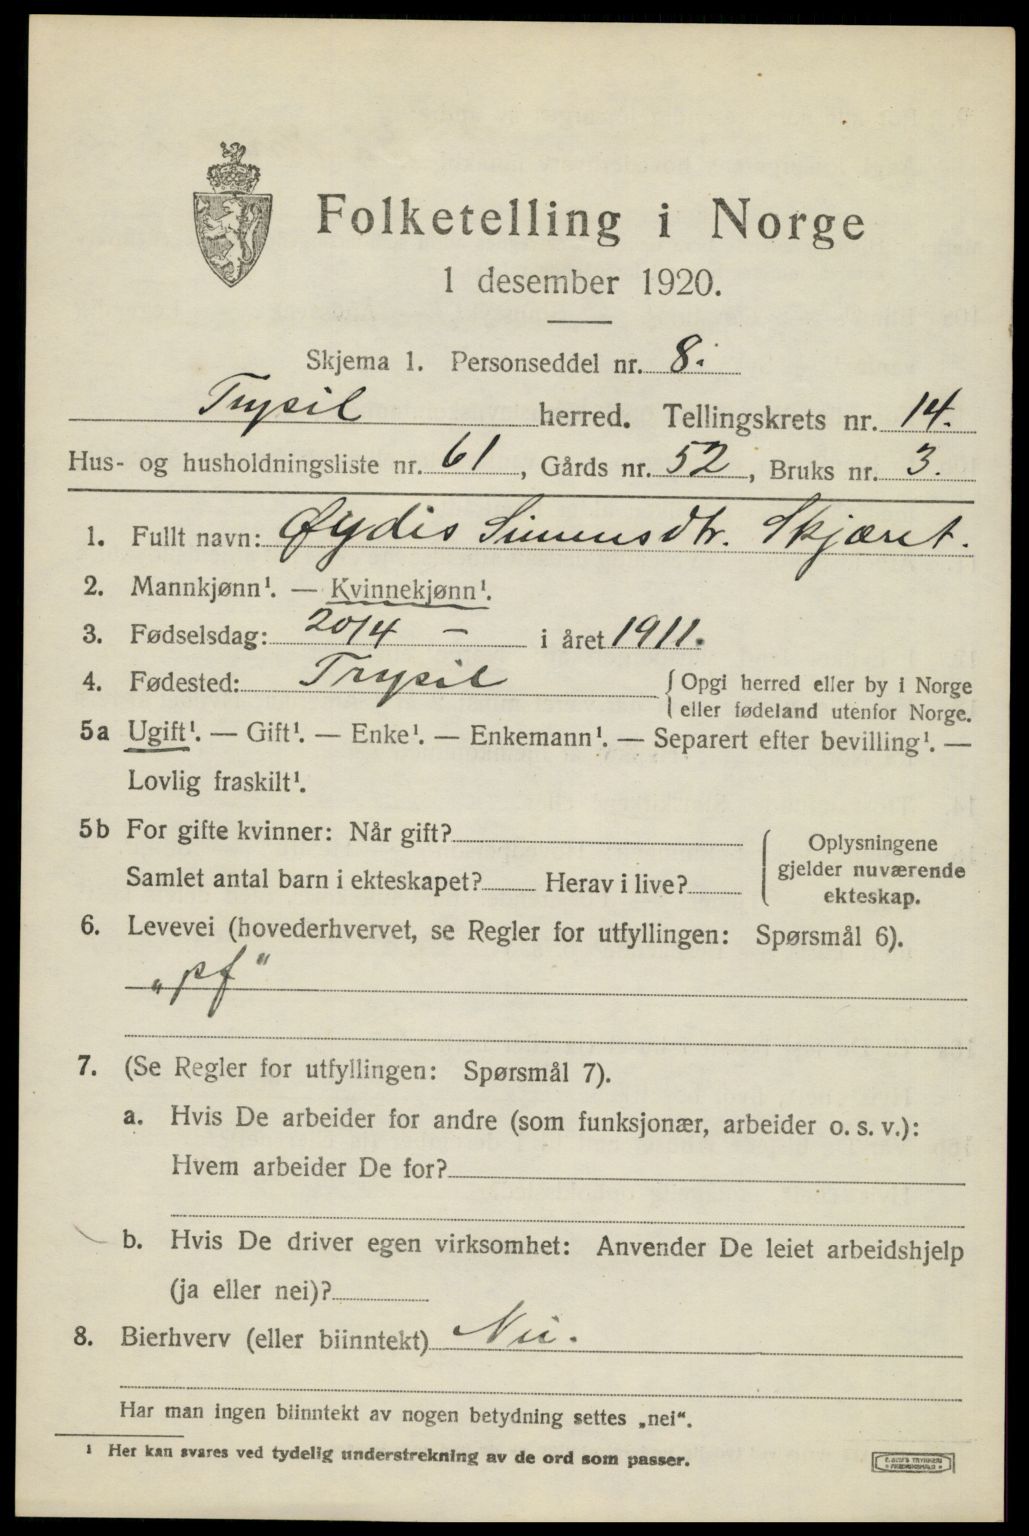 Folketelling i Norge
1 desember 1920.
Skjema 1. Personseddel nr. 8.
Trysil herred. Tellingskrets nr. 14.
Hus- og husholdningsliste nr. 61, Gårds nr. 52, Bruks nr. 3.
1. Fullt navn: Øydis Simensdtr. Skjæret.
2. Mannkjønn¹. — Kvinnekjønn¹.
3. Fødselsdag: 20/4 – i året 1911.
4. Fødested: Trysil { Opgi herred eller by i Norge
eller fødeland utenfor Norge.
5a Ugift¹. — Gift¹. — Enke¹. — Enkemann¹. — Separert efter bevilling¹. —
Lovlig fraskilt¹.
5b For gifte kvinner: Når gift?
Samlet antal barn i ekteskapet? Herav i live?
Oplysningene
gjelder nuværende
ekteskap.
6. Levevei (hovederhvervet, se Regler for utfyllingen: Spørsmål 6).
„pf“
7. (Se Regler for utfyllingen: Spørsmål 7).
a. Hvis De arbeider for andre (som funksjonær, arbeider o. s. v.):
Hvem arbeider De for?
b. Hvis De driver egen virksomhet: Anvender De leiet arbeidshjelp
(ja eller nei)?
8. Bierhverv (eller biinntekt) Nei.
Har man ingen biinntekt av nogen betydning settes „nei“.
¹ Her kan svares ved tydelig understrekning av de ord som passer.